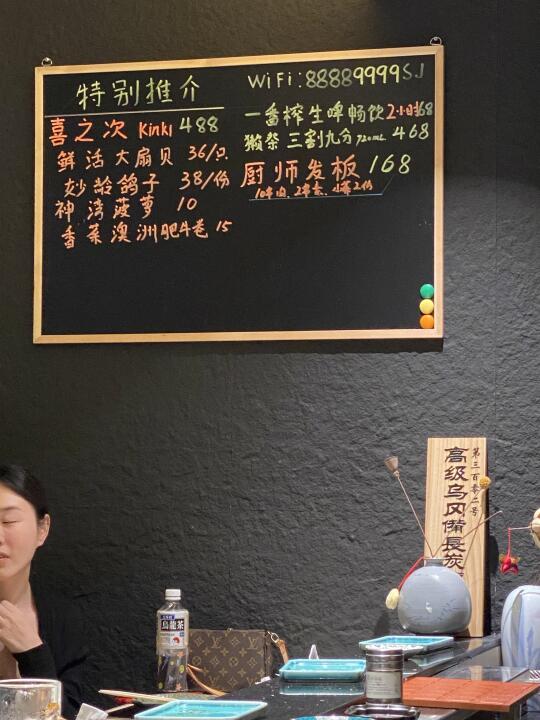 特别推介
喜之次 Kinki 488
鲜活大扇贝 36/只
妙龄鸽子 38/份
神湾菠萝 10
香菜澳洲肥牛卷 15
WiFi:88889999SJ
一番榨生啤畅饮2小时68
獭祭三割九分720mL 468
厨师发板 168
10串肉、2串素、小菜2份
第三百零二号
高级乌冈備長炭
烏龍茶